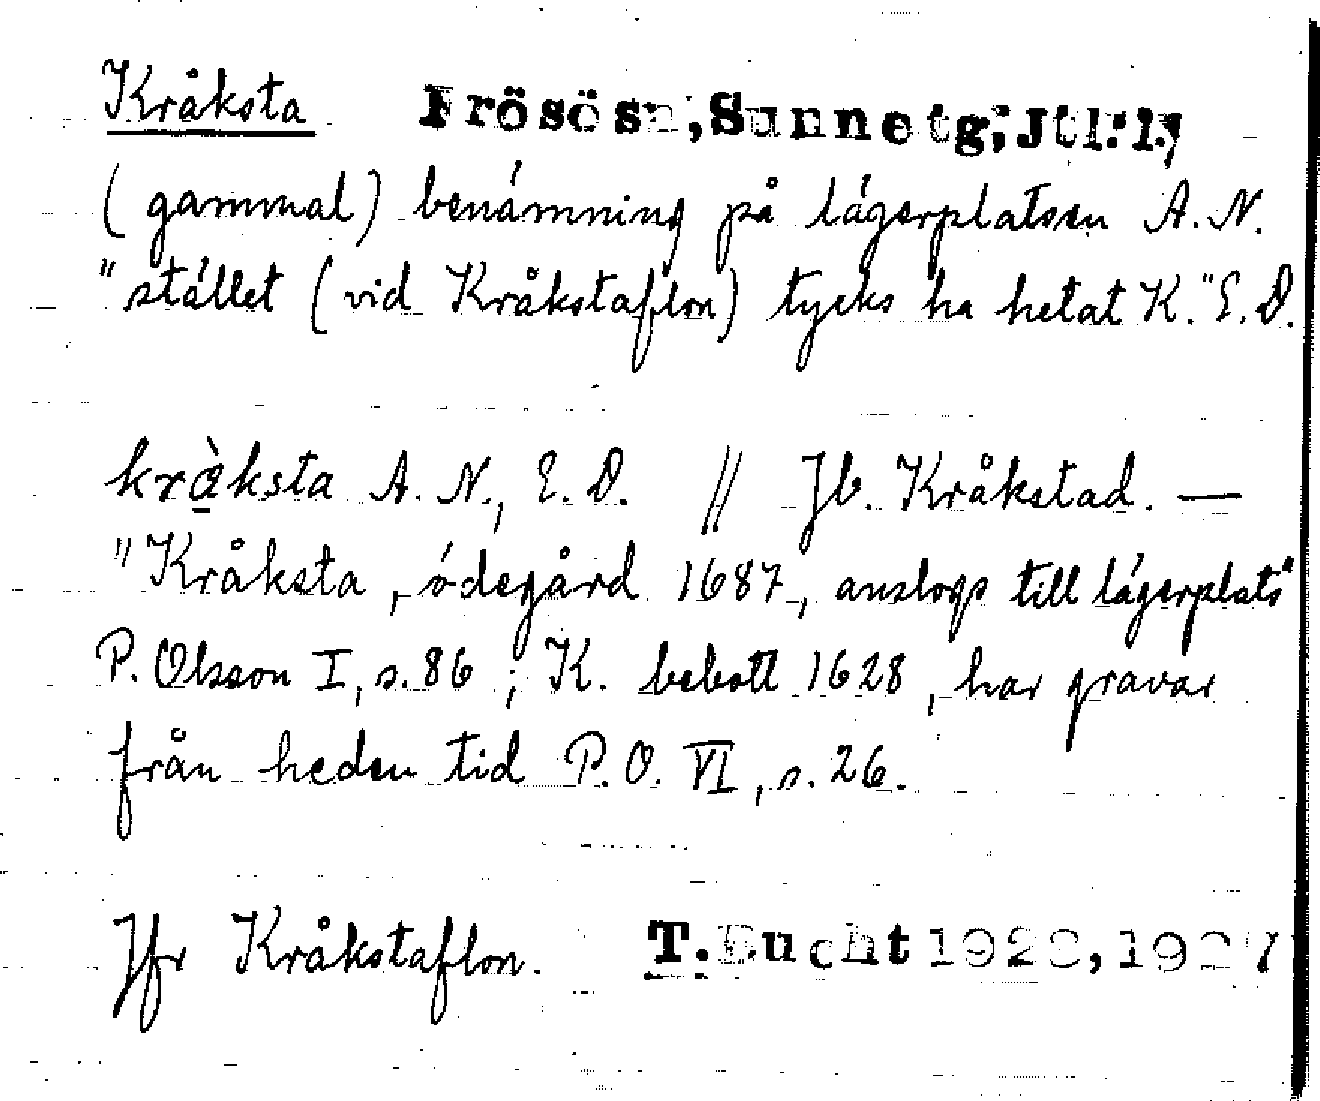 Kråksta Frösön, Sunne tg, Jtl. l.,
(gammal) benämning på lägerplatsen A. N.
"stället (vid Kråkstaflon) tycks ha hetat K." E. D.
kràksta A. N., E. D. // Jb. Kråkstad. —
"Kråksta, ödegård 1687, anslogs till lägerplats"
P. Olsson I, s. 86 ; K. bebott 1628, har gravar
från heden tid P. O. VI, s. 26.
Jfr Kråkstaflon. T. Bucht 1928, 1937